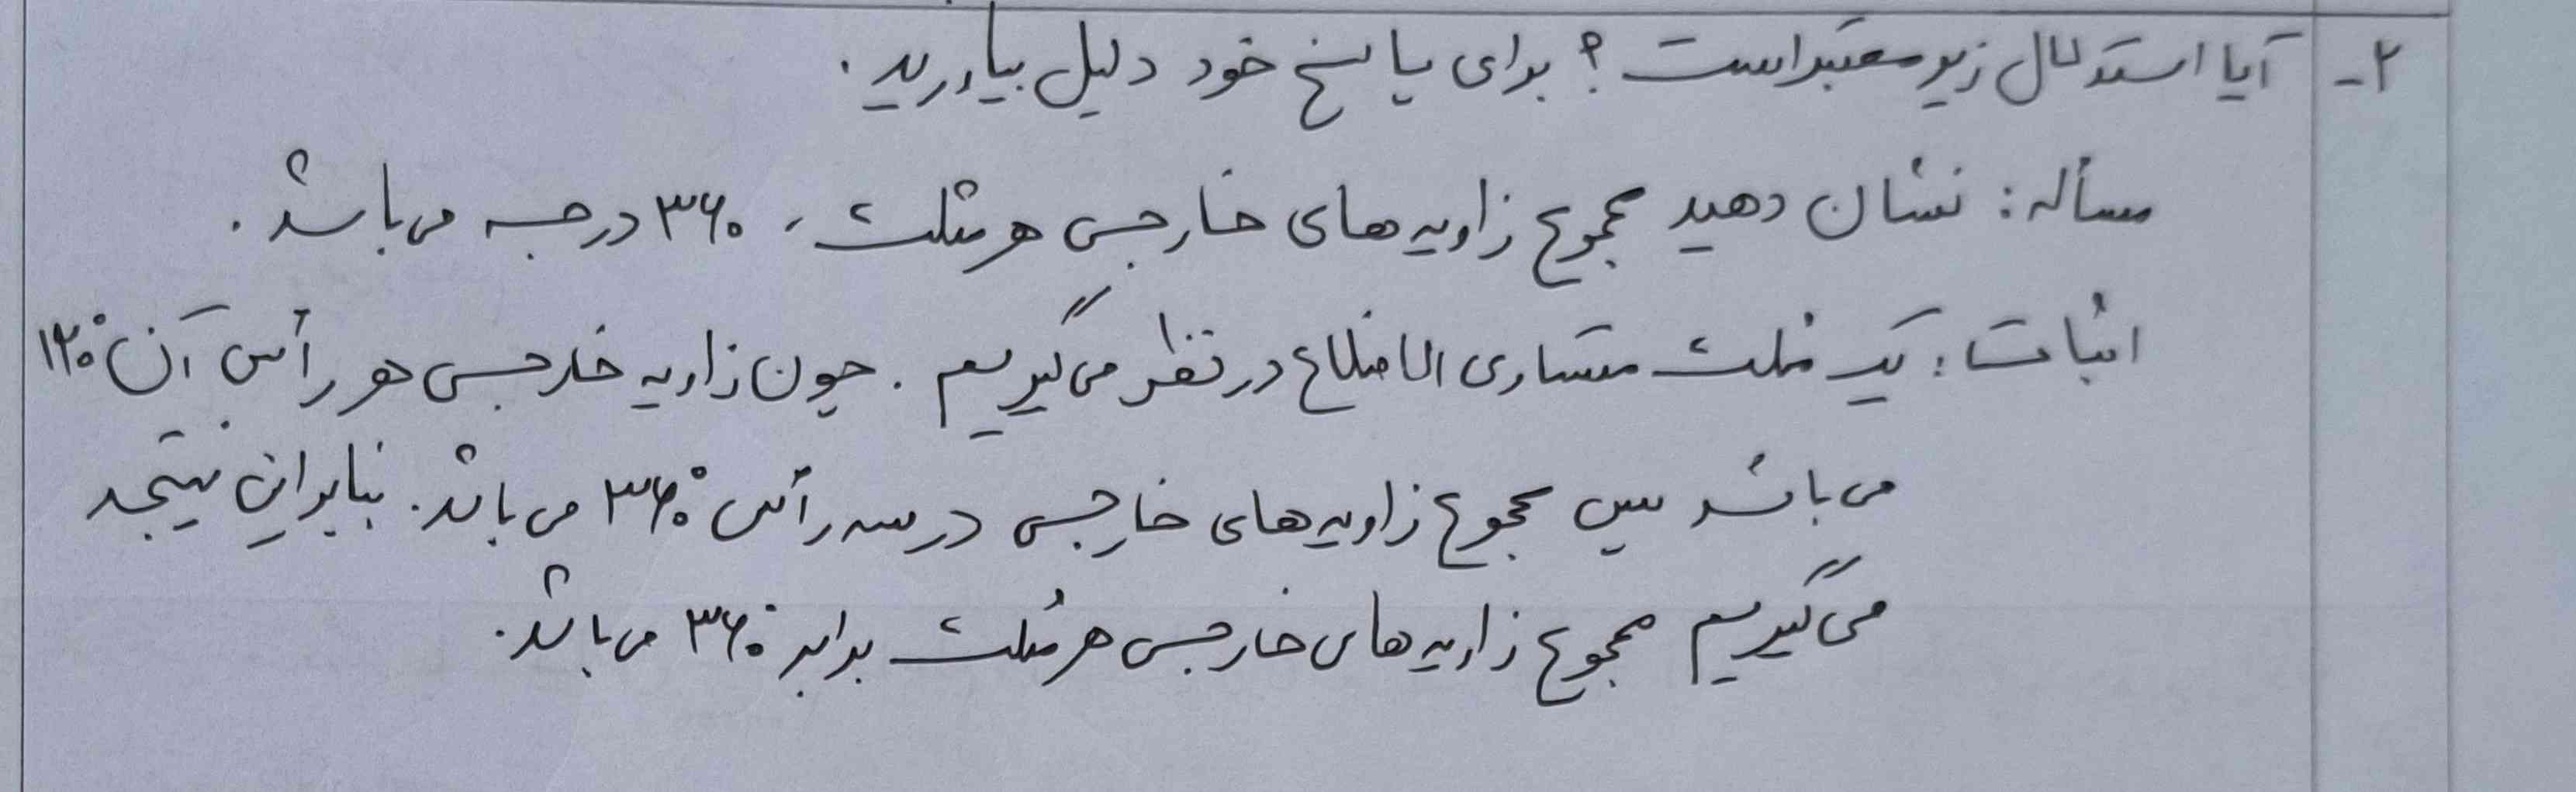 ۲- آیا استدلال زیر معتبر است ؟ برای پاسخ خود دلیل بیاورید .
مسأله : نشان دهید مجموع زاویه های خارجی هر مثلث ، ۳۶۰ درجه می باشد .
اثبات : یک مثلث متساوی الاضلاع در نظر می گیریم . چون زاویه خارجی هر رأس آن ۱۲۰°
می باشد پس مجموع زاویه های خارجی در سه رأس ۳۶۰° می باشد . بنابراین نتیجه
می گیریم مجموع زاویه های خارجی هر مثلث برابر ۳۶۰° می باشد .